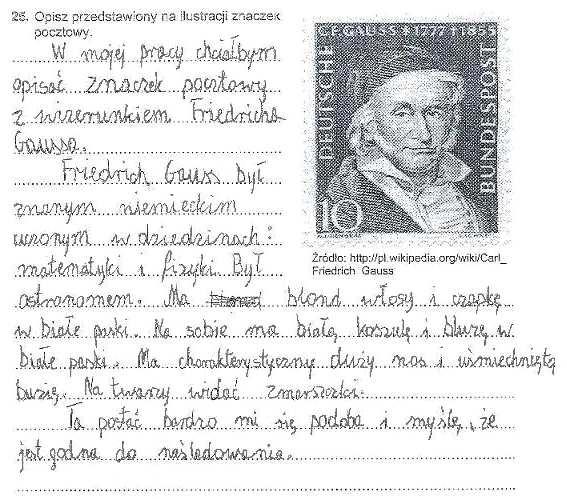 25. Opisz przedstawiony na ilustracji znaczek
pocztowy.
W mojej pracy chciałbym
opisać znaczek pocztowy
z wizerunkiem Friedricha
Gaussa.
Friedrich Gauss był
znanym niemieckim
uczonym w dziedzinach:
matematyki i fizyki Był
astronomem. Ma blond włosy i czapkę
w białe paski. Na sobie ma białą koszulę i bluzę w
białe paski. Ma charakterystyczny duży nos i uśmiechniętą
buzię. Na twarzy widać zmarszczki.
Ta postać bardzo mi się podoba i myślę, że
jest godna do naśladowania.
C.F. GAUSS † 1777 † 1855
DEUTSCHE
BUNDESPOST
10
Źródło: http://pl.wikipedia.org/wiki/Carl_
Friedrich_Gauss